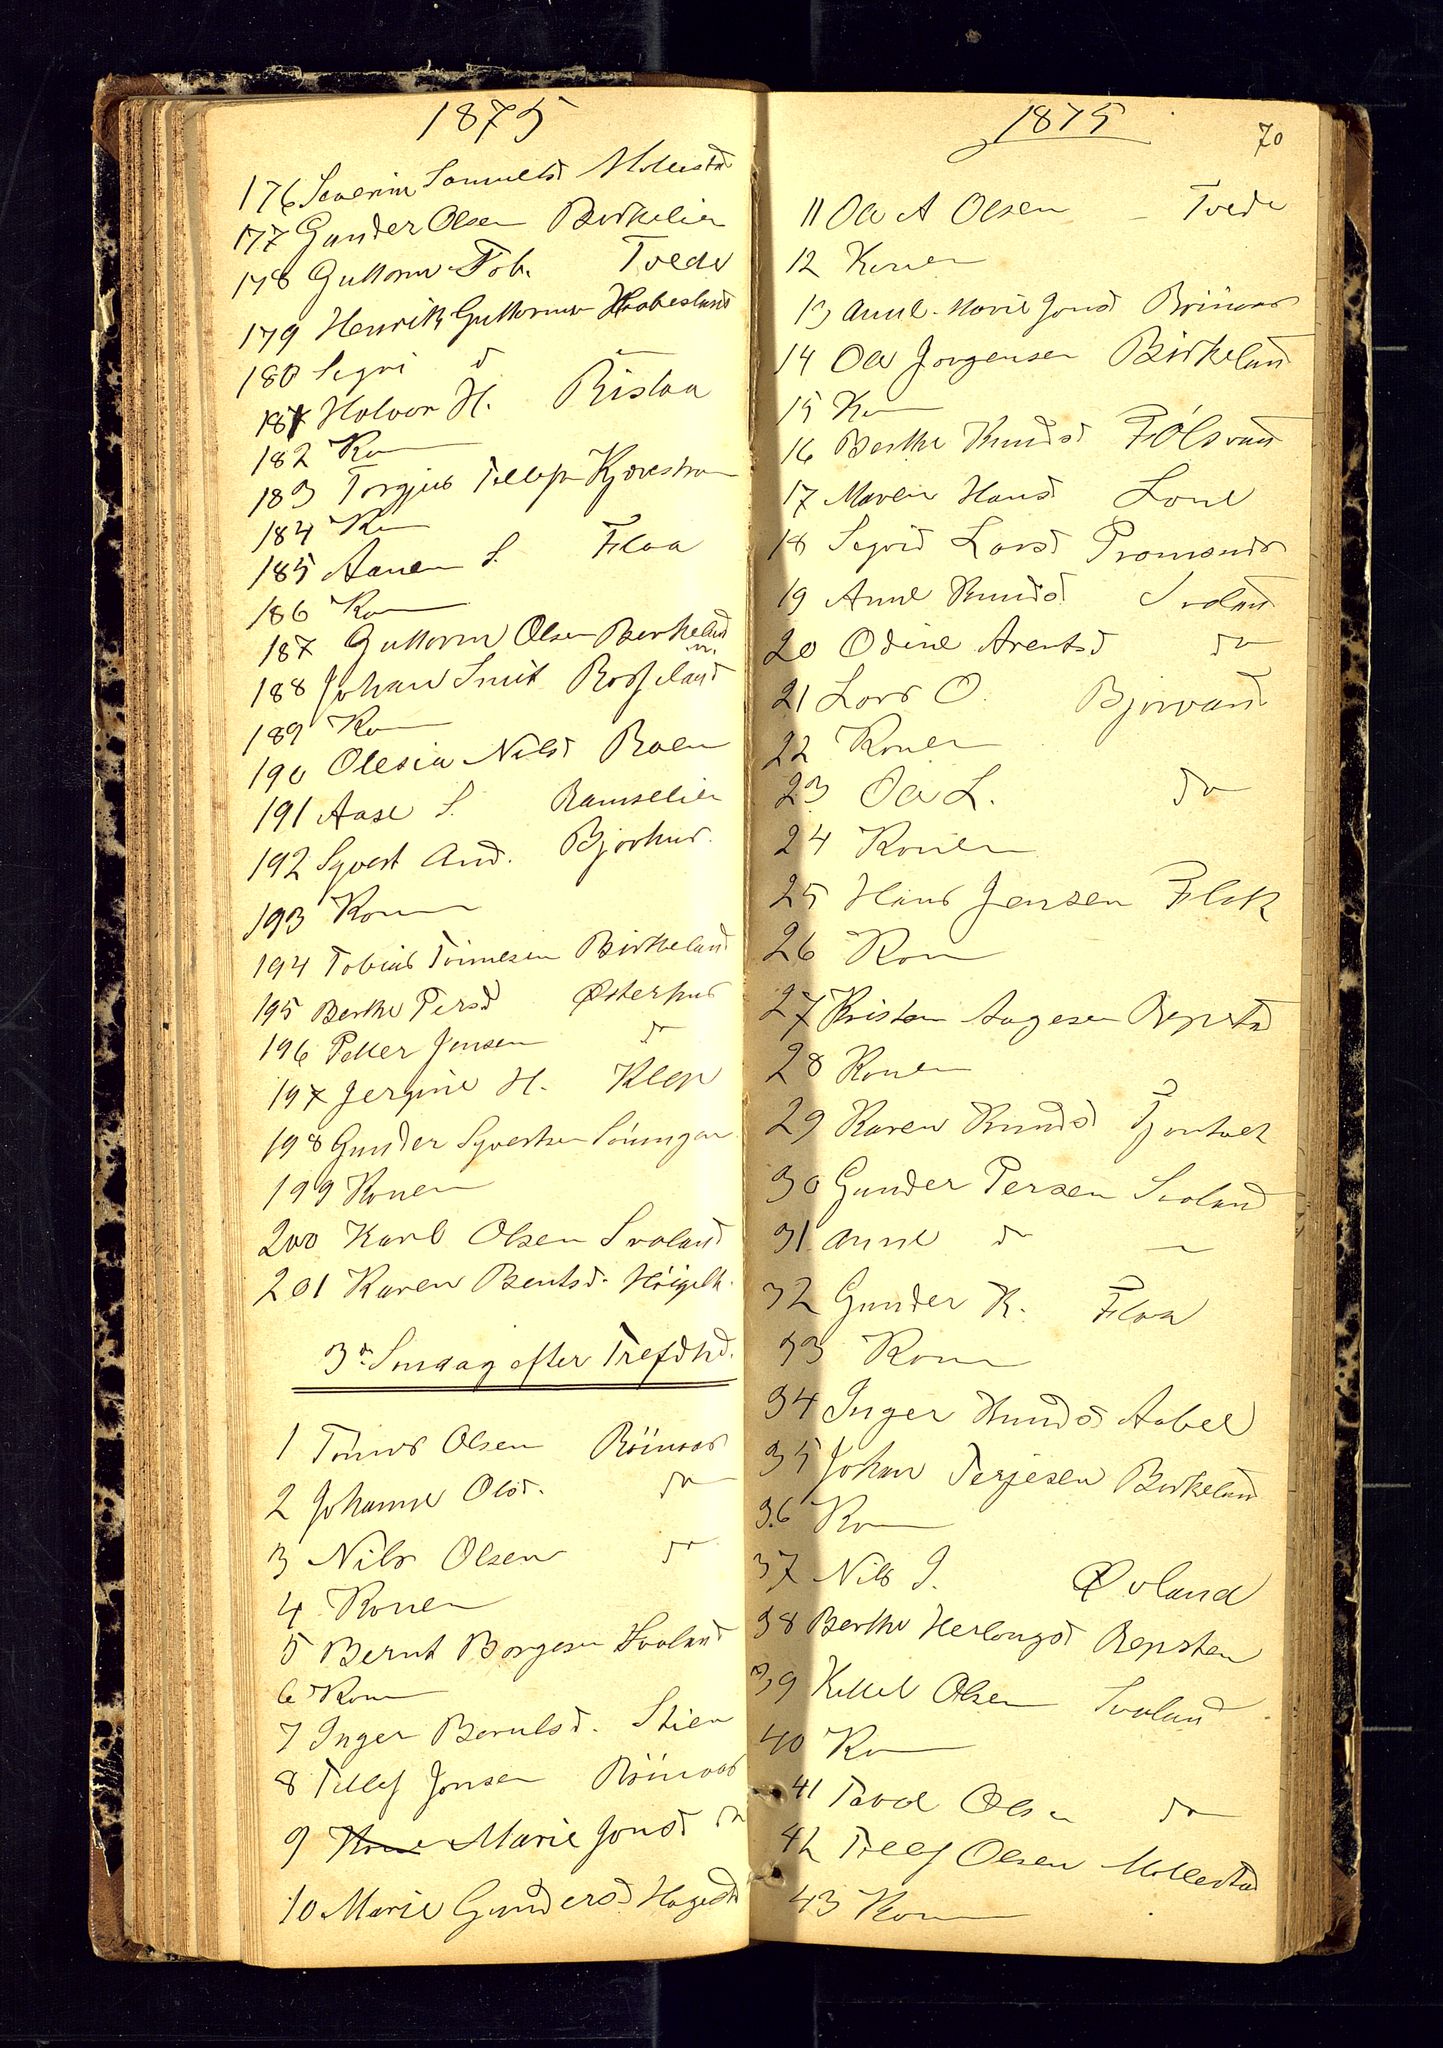 1875
176 Severine Samuelsd Mollestad
177 Gunder Olsen Birkelien
178 Guttorm Tob. Tvede
179 Henrik Guttormsen Haabesland
180 Segri do
181 Halvor H. Rislaa
182 Kon
183 Torgius Tellefsen
184 Kon
185 Aanen S. Flaa
186 Kon
187 Guttorm Olsen Berkeland
188 Johan Smit Rosseland
189 Kon
190 Olesia Nilsd Roen
191 Aase S. Ramselien
192 Syvert And. Bjorhus.
193 Konen
194 Tobias Tönnesen Birkeland
195 Berthe Persd Østerhus
196 Petter Jensen do
197 Jergine H. Klep
198 Gunder Syvertsen
199 Konen
200 Karl Olsen Svaland
201 Karen Bentsd.
3die Søndag efter Trefdhd.
1 Tönnes Olsen Röinaas
2 Johanne Olsd. do
3 Nils Olsen do
4 Konen
5 Bernt Borgesen Svaland
6 Kon
7 Inger Berntsd. Stien
8 Tellef Jonsen Röinaas
9 Kone Marie Jonsd do
10 Marie Gundersd Hagestd
1875
70
11 Ole A Olsen – Tvede
12 Konen
13 Anne-Marie Jonsd Röinaas
14 Ole Jorgensen Birkeland
15 Kon
16 Berthe Knudsd Fölsvand
17 Maren Hansd Lone
18 Segrid Larsd
19 Anne Knudsd Svaland
20 Odine Arentsd do
21 Lars O. Bjorvand
22 Konen
23 Ole L. do
24 Konen
25 Hans Jensen Flak
26 Kon
27 Kristen Aagesen Repstd
28 Konen
29 Karen Knudsd
30 Gunder Persen Svaland
31 Anne do –
32 Gunder K. Flaa
33 Kon
34 Inger Knudsd Aabel
35 Johan Terjesen Birkeland
36 Kon
37 Nils J. Øvland
38 Berthe Herlougsd Repsten
39 Kittel Olsen Svaland
40 Kon
41 Tarald Olsen do
42 Tellef Olsen Mollestad
43 Kon